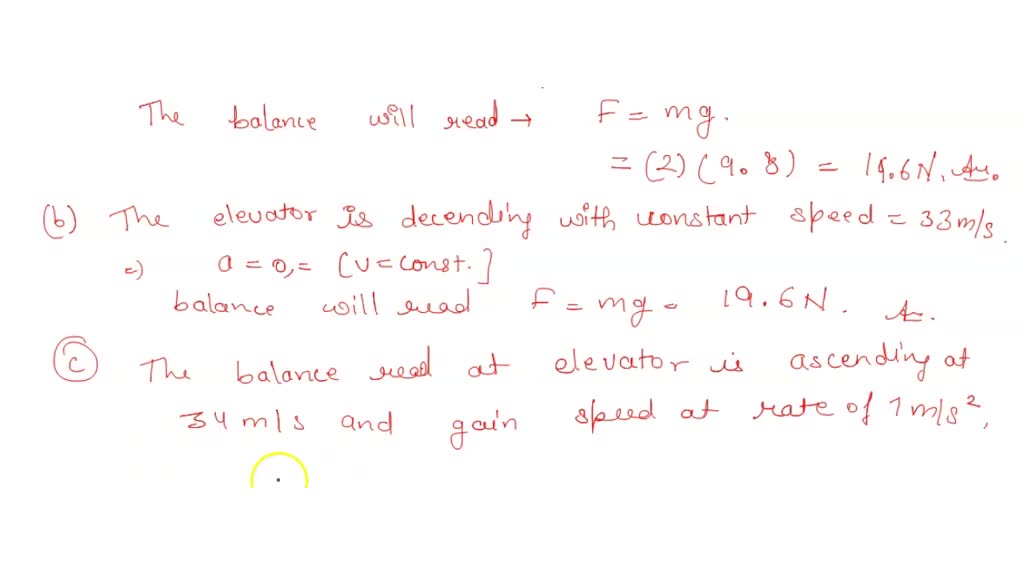 The balance will read → F = mg.
= (2) (9.8) = 19.6N. An.
(b) The elevator is decending with constant speed = 33 m/s.
=) a = 0, = [v = const.]
balance will read F = mg = 19.6 N. An.
(c) The balance read at elevator is ascending at
34 m/s and gain speed at rate of 7 m/s²,